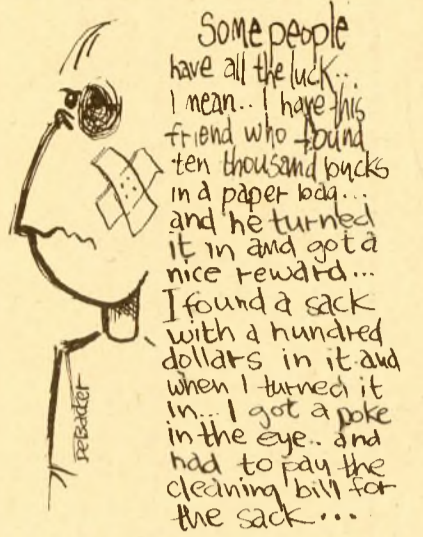 Some people
have all the luck..
I mean.. I have this
friend who found
ten thousand bucks
in a paper bag...
and he turned
it in and got a
nice reward...
I found a sack
with a hundred
dollars in it and
when I turned it
in... I got a poke
in the eye.. and
had to pay the
cleaning bill for
the sack...
DeBacker